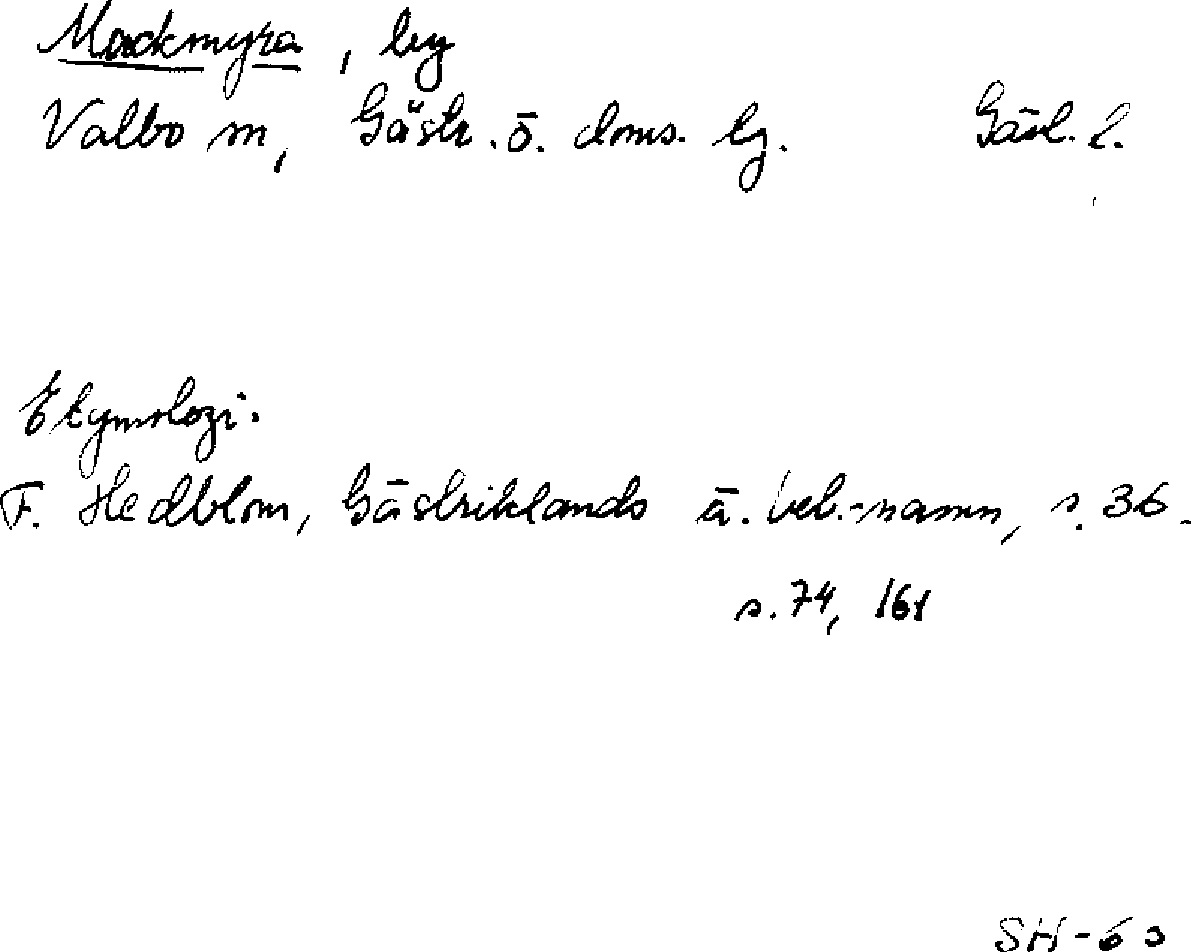 Mackmyra, by
Valbo sn, Gästr. ö. doms. lg. Gävl. l.
Etymologi.
F. Hedblom, Gästriklands ä. beb.-namn, s. 36.
s. 74, 161
SH-60